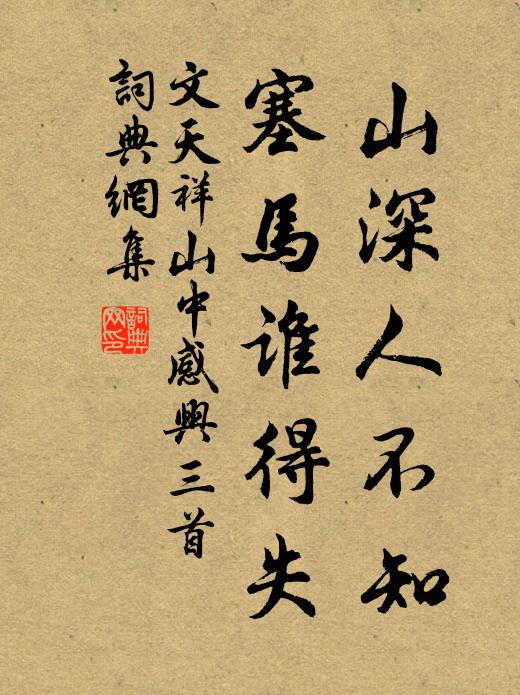 山深人不知
塞馬谁得失
文天祥山中感興三首
詞典網集
詞典網印